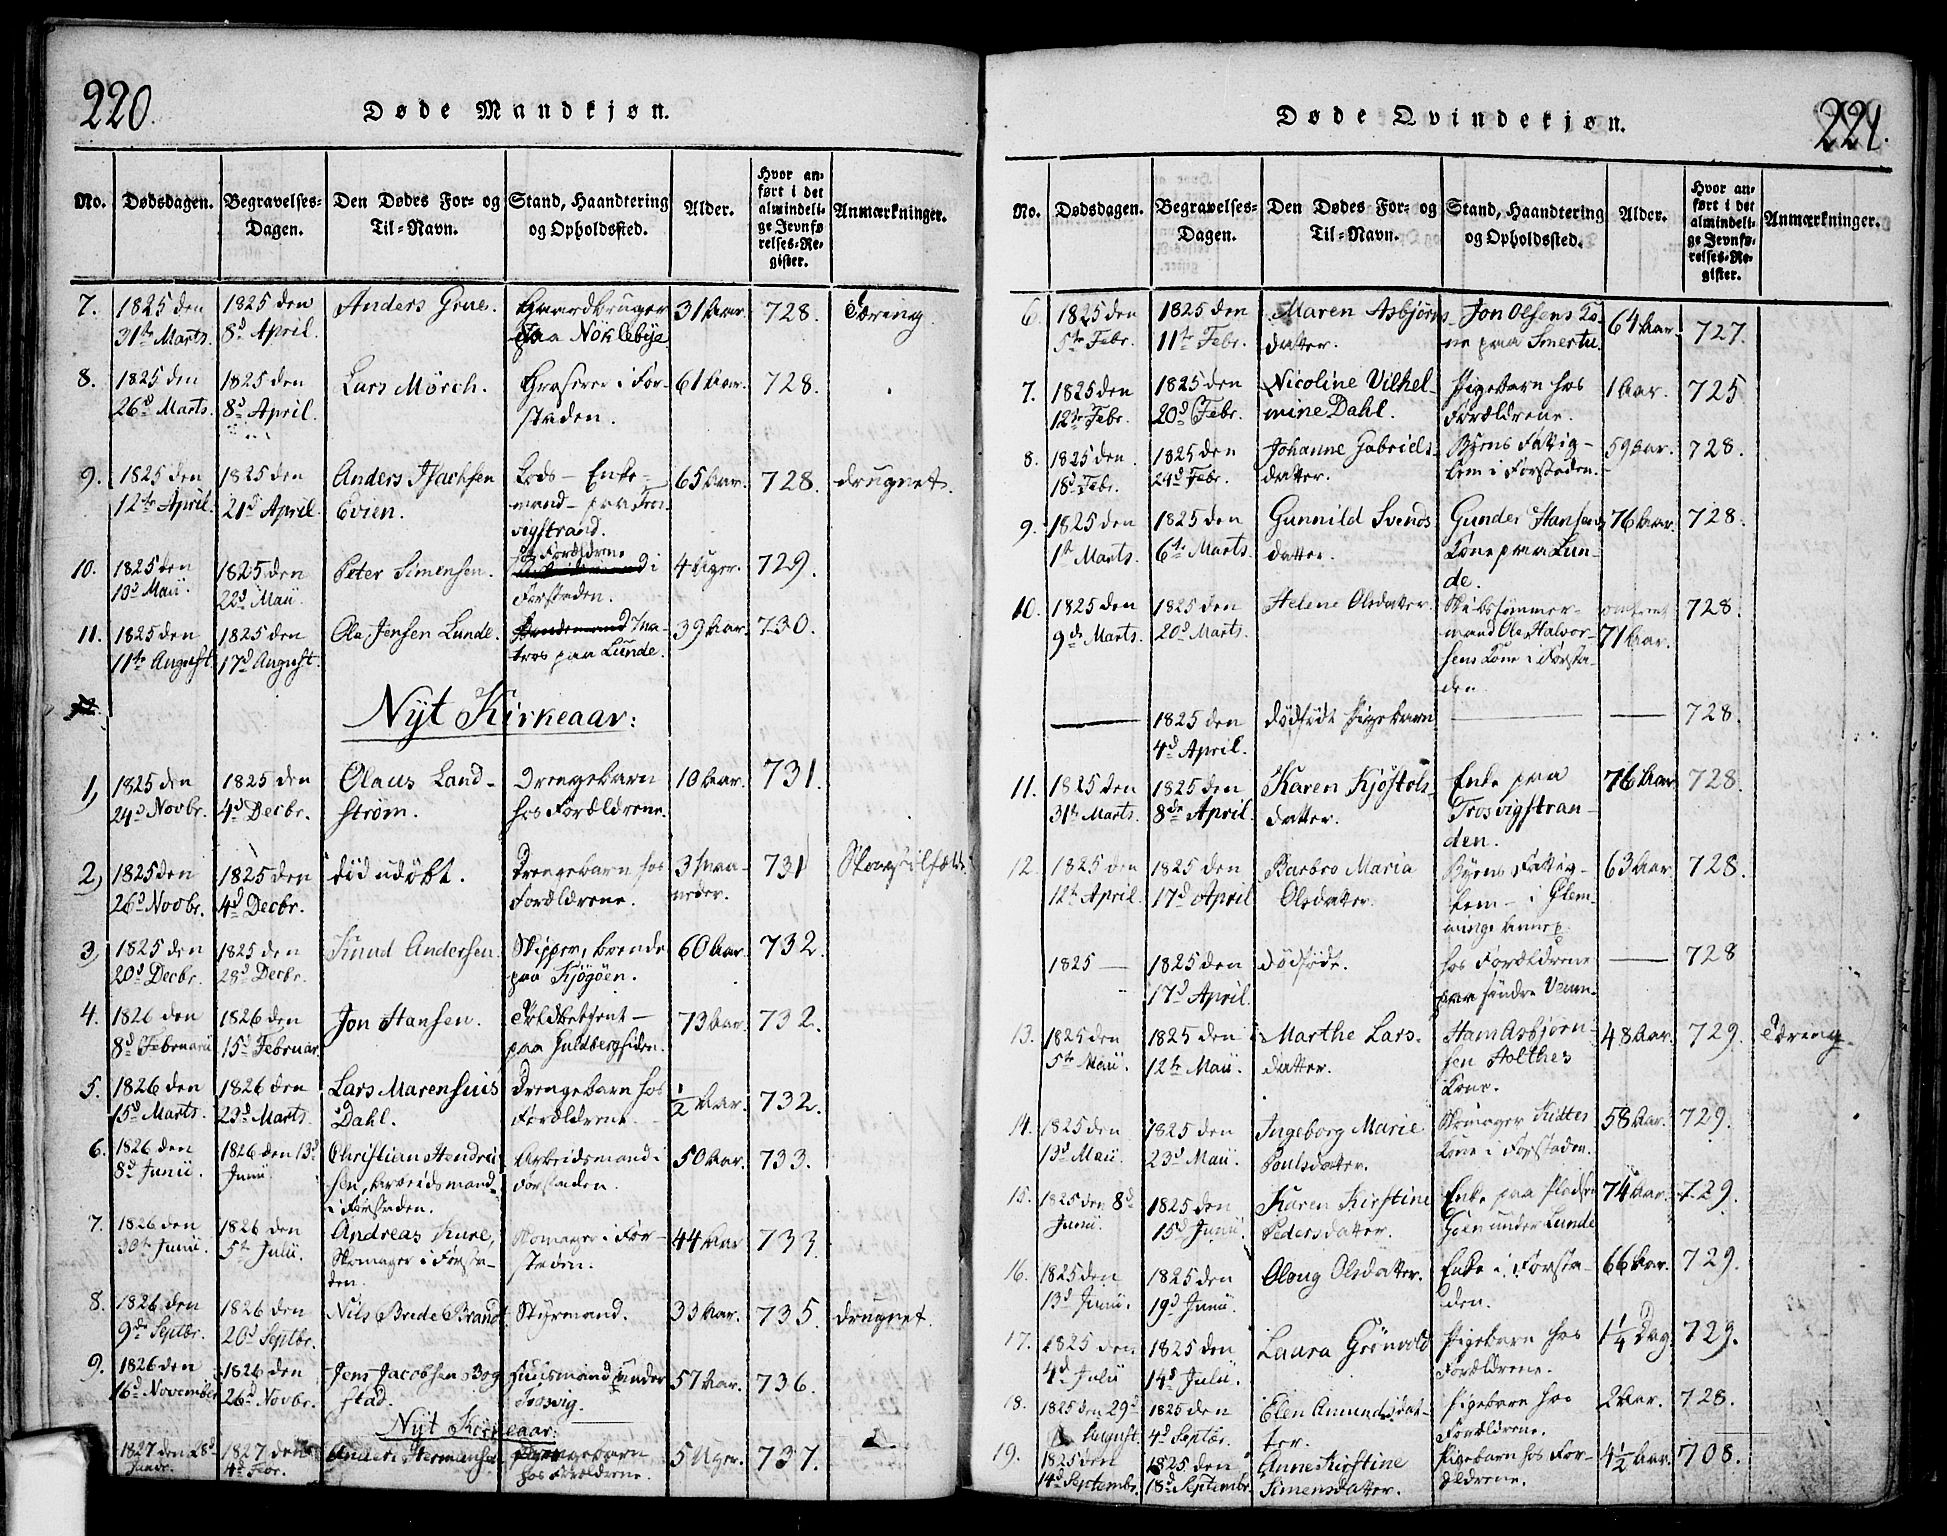 220.
Døde Mandkjøn.
No. Dødsdagen. Begravelses-Dagen. Den Dødes For- og Til-Navn. Stand, Haandtering og Opholdssted. Alder. Hvor anført i det almindelige Jevnførelses-Register. Anmærkninger.
7. 1825 den 31te Marts. 1825 den 8d April. Anders Grue. Gaardbruger paa Nöklebÿe 31 Aar. 728. Tæring.
8. 1825 den 26d Marts. 1825 den 8d April. Lars Mörch. i Forstaden. 61 Aar. 728.
9. 1825 den 12te April. 1825 den 21d April. Anders Isachsen Evien. Lods - Enkemand - paa vigstrand. 65 Aar. 728. druknet.
10. 1825 den 13d Maii. 1825 den 22d Maii Peter Simensen. hos Forældrene i Forstaden. 4 Uger. 729.
11. 1825 den 11te August 1825 den 17d August. Ole Jensen Lunde. Matros paa Lunde. 39 Aar. 730.
Nÿt Kirkeaar:
1, 1825 den 24d Novbr. 1825 den 4d Decbr. Olaus Landström. Drengebarn hos Forældrene. 10 Aar. 731.
2, 1825 den 26d Novbr. 1825 den 4d Decbr. död udöbt. Drengebarn hos Forældrene. 3 Maaneder. 731
3, 1825 den 20d Decbr. 1825 den 28d Decbr. Knud Andersen. Skipper, boende paa Kjögöen. 60 Aar. 732.
4. 1826 den 8d Februarii 1826 den 15d Februar. Jon Hansen. Toldbetjent - paa Guldbergsiden. 73 Aar. 732.
5. 1826 den 15d Marts. 1826 den 23d Marts. Lars Marensius Dahl. Drengebarn hos Forældrene. 1/2 Aar. 732.
6. 1826 den 8d Junii. 1826 den 13d Junii. Christian Hendriksen, Arbeidsmand i Forstaden. Arbeidsmand i Forstaden. 50 Aar. 733.
7. 1826 den 30te Junii. 1826 den 5te Julii. Andreas Kure, Skomager i Forstaden. Skomager i Forstaden. 44 Aar 733.
8. 1826 den 9de Septbr. 1826 den 20d Septbr. Nils Brede Brandt Stÿrmand. 33 Aar. 735. druknet.
9. 1826 den 16d November 1826 den 26d Novbr. Jens Jacobsen Bogstad. Huusmand under Trosvig. 57 Aar. 736.
Nÿt Kirkeaar:
1827 den 28d Janr. 1827 den 4d Febr. Anders Hermansen Drengebarn hos Forældrene. 5 Uger. 737.
221.
Døde Qvindekjøn.
No. Dødsdagen. Begravelses-Dagen. Den Dødes For- og Til-Navn. Stand, Haandtering og Opholdssted. Alder. Hvor anført i det almindelige Jevnførelses-Register. Anmærkninger.
6. 1825 den 5te Febr. 1825 den 11te Febr. Maren Asbjörnsdatter. Jon Olsens Kone paa Smertu. 64 Aar. 727.
7. 1825 den 12te Febr. 1825 den 20d Febr. Nicoline Vilhelmine Dahl. Pigebarn hos Forældrene. 1 Aar. 725
8. 1825 den 18d Febr. 1825 den 24d Febr. Johanne Gabrielsdatter. Bÿens Fattiglem i Forstaden. 59 Aar. 728.
9. 1825 den 1te Marts. 1825 den 6te Marts. Gunnild Svendsdatter. Gunder Hansens Kone paa Lunde. 76 Aar. 728.
10. 1825 den 9de Marts. 1825 den 20d Marts. Helene Olsdatter. Skibstömmermand Ole Halvorsens Kone i Forstaden. omtrent 71 Aar. 728.
— 1825 den 4d April. dödfödt Pigebarn — — 728.
11. 1825 den 31te Marts. 1825 den 8de April. Karen Kjöstelsdatter. Enke paa Trosvigstranden. 76 Aar 728.
12. 1825 den 12te April. 1825 den 17d April Barbro Maria Olsdatter. Bÿens Fattiglem - i Glemminge 63 Aar. 728.
1825 — 1825 den 17d April. dödfödt. hos Forældrene paa söndre — 728
13. 1825 den 5te Maii. 1825 den 12te Maii. Marthe Larsdatter. Hans Asbjörnsen Holthes Kone. 48 Aar. 729. Tæring.
14. 1825 den 13d Maii. 1825 den 23d Maii. Ingeborg Marie Poulsdatter. Skomager Kone i Forstaden. 58 Aar. 729.
15. 1825 den 8d Junii. 1825 den 15d Junii. Karen Kirstine Pedersdatter. Enke paa under Lunde 74 Aar. 729.
16. 1825 den 13d Junii. 1825 den 19d Junii. Oloug Olsdatter. Enke i Forstaden. 66 Aar. 729.
17. 1825 den 4d Julii 1825 den 14d Julii. Laura Grönvold Pigebarn hos Forældrene. 1 1/4 Dag. 729.
18. 1825 den 29d August. 1825 den 4d Septbr. Elen Amundsdatter. Pigebarn hos Forældrene. 2 Aar. 728.
19. 1825 den 14d Septembr. 1825 den 18d Septembr. Anne Kirstine Simensdatter. Pigebarn hos Forældrene. 4 1/2 Aar. 708.